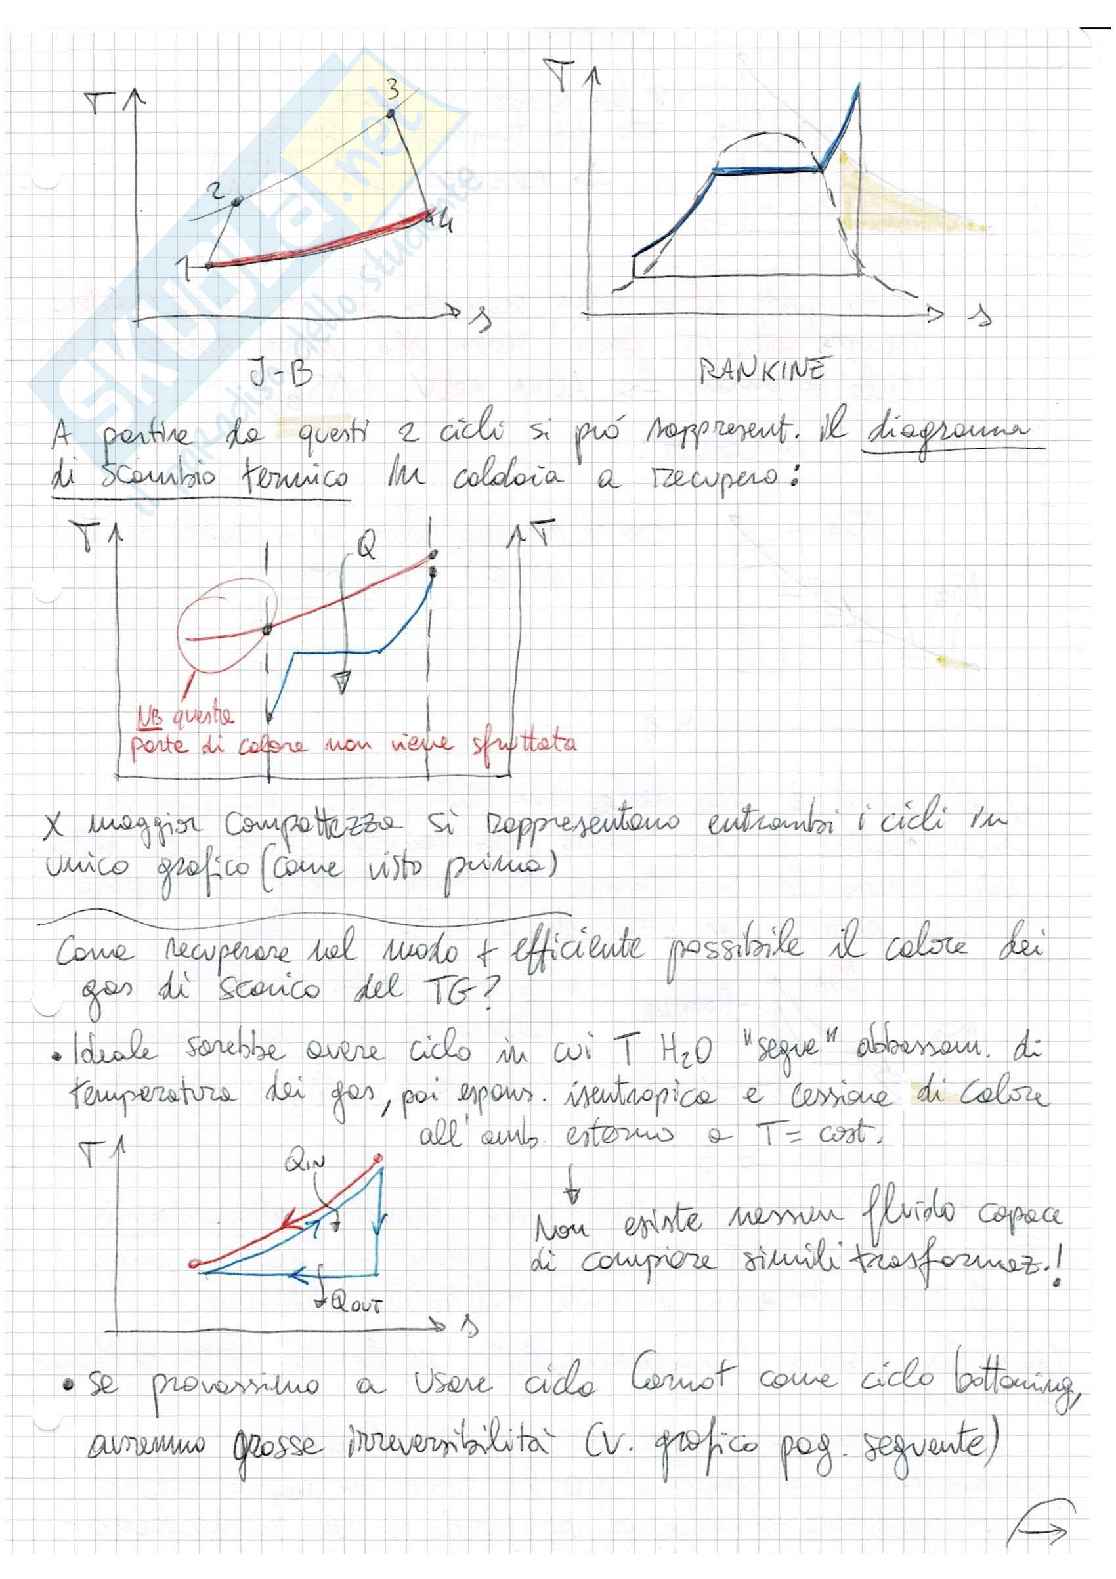 T
3
2
1
4
s
J-B
T
s
RANKINE
SKUOLA.net
il paradiso dello studente
A partire da questi 2 cicli si può rappresent. il diagramma
di scambio termico in caldaia a recupero:
T
Q
T
NB questa
parte di calore non viene sfruttata
X maggior compattezza si rappresentano entrambi i cicli in
unico grafico (come visto prima)
Come recuperare nel modo + efficiente possibile il calore dei
gas di scarico del TG?
• Ideale sarebbe avere ciclo in cui T H2O "segue" abbassam. di
temperatura dei gas, poi espans. isentropica e cessione di calore
all'amb. esterno a T = cost.
T
QIN
QOUT
s
Non esiste nessun fluido capace
di compiere simili trasformaz.!
• se provassimo a usare ciclo Carnot come ciclo bottoming,
avremmo grosse irreversibilità (v. grafico pag. seguente)